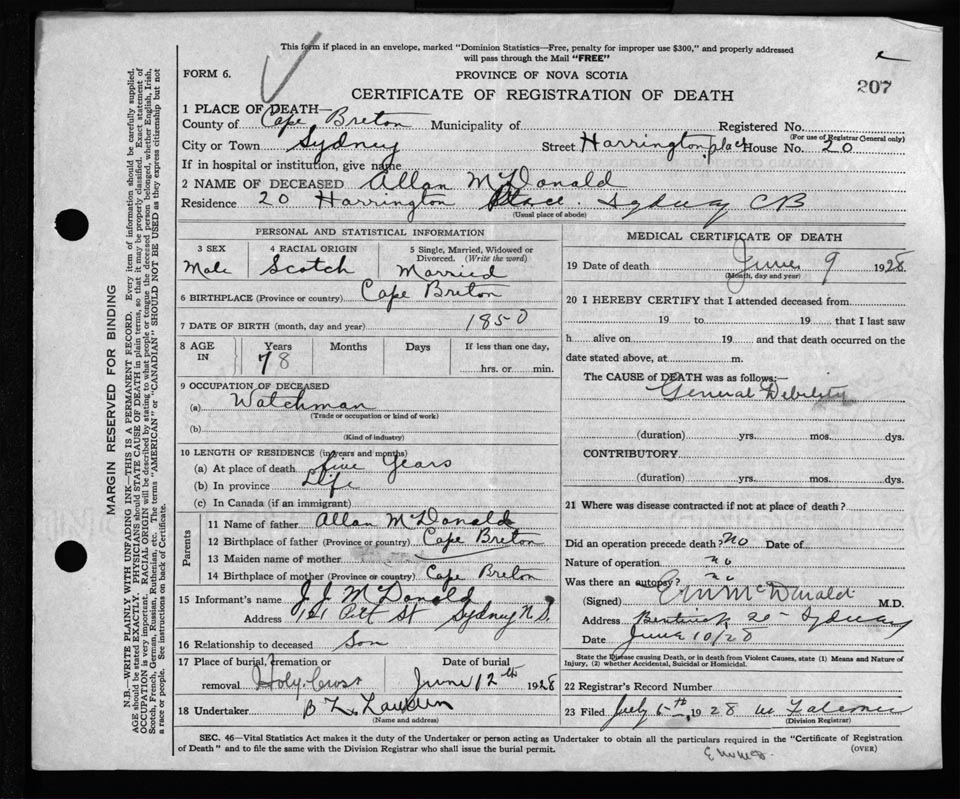 This form if placed in an envelope, marked "Dominion Statistics—Free, penalty for improper use $300," and properly addressed
will pass through the Mail "FREE"
FORM 6.
PROVINCE OF NOVA SCOTIA
207
CERTIFICATE OF REGISTRATION OF DEATH
1 PLACE OF DEATH—
County of Cape Breton Municipality of Registered No.
(For use of Registrar General only)
City or Town Sydney Street Harrington place House No. 20
If in hospital or institution, give name
2 NAME OF DECEASED Allan McDonald
Residence 20 Harrington Place. Sydney CB
(Usual place of abode)
PERSONAL AND STATISTICAL INFORMATION
3 SEX 4 RACIAL ORIGIN 5 Single, Married, Widowed or
Divorced. (Write the word)
Male Scotch Married
6 BIRTHPLACE (Province or country) Cape Breton
7 DATE OF BIRTH (month, day and year) 1850
8 AGE IN Years Months Days If less than one day,
78 hrs. or min.
9 OCCUPATION OF DECEASED
(a) Watchman
(Trade or occupation or kind of work)
(b)
(Kind of industry)
10 LENGTH OF RESIDENCE (in years and months)
(a) At place of death five years
(b) In province Life
(c) In Canada (if an immigrant)
Parents
11 Name of father Allan McDonald
12 Birthplace of father (Province or country) Cape Breton
13 Maiden name of mother
14 Birthplace of mother (Province or country) Cape Breton
15 Informant's name J.J. McDonald
Address 121 Pitt St Sydney N.S.
16 Relationship to deceased Son
17 Place of burial, cremation or Date of burial
removal Holy Cross June 12th 1928
18 Undertaker B L
(Name and address)
MEDICAL CERTIFICATE OF DEATH
19 Date of death June 9 1928
(Month, day and year)
20 I HEREBY CERTIFY that I attended deceased from
19 to 19 that I last saw
h alive on 19 and that death occurred on the
date stated above, at m.
The CAUSE of DEATH was as follows:—
General Debility
(duration) yrs. mos. dys.
CONTRIBUTORY
(duration) yrs. mos. dys.
21 Where was disease contracted if not at place of death?
Did an operation precede death? no Date of
Nature of operation no
Was there an autopsy? no
(Signed) McDonald M.D.
Address Bentinck Sydney
Date June 10/28
State the Disease causing Death, or in death from Violent Causes, state (1) Means and Nature of
Injury, (2) whether Accidental, Suicidal or Homicidal.
22 Registrar's Record Number
23 Filed July 5th, 1928
(Division Registrar)
SEC. 46—Vital Statistics Act makes it the duty of the Undertaker or person acting as Undertaker to obtain all the particulars required in the "Certificate of Registration
of Death" and to file the same with the Division Registrar who shall issue the burial permit.
(OVER)
MARGIN RESERVED FOR BINDING
N.B.—WRITE PLAINLY WITH UNFADING INK—THIS IS A PERMANENT RECORD. Every item of information should be carefully supplied.
AGE should be stated EXACTLY. PHYSICIANS should STATE CAUSE OF DEATH in plain terms, so that it may be properly classified. Exact statement of
OCCUPATION is very important. RACIAL ORIGIN will be described by stating to what people or tongue the deceased person belonged, whether English, Irish,
Scotch, French, German, Russian, Ruthenian, etc. The terms "AMERICAN" or "CANADIAN" SHOULD NOT BE USED as they express citizenship but not
a race or people. See instructions on back of Certificate.